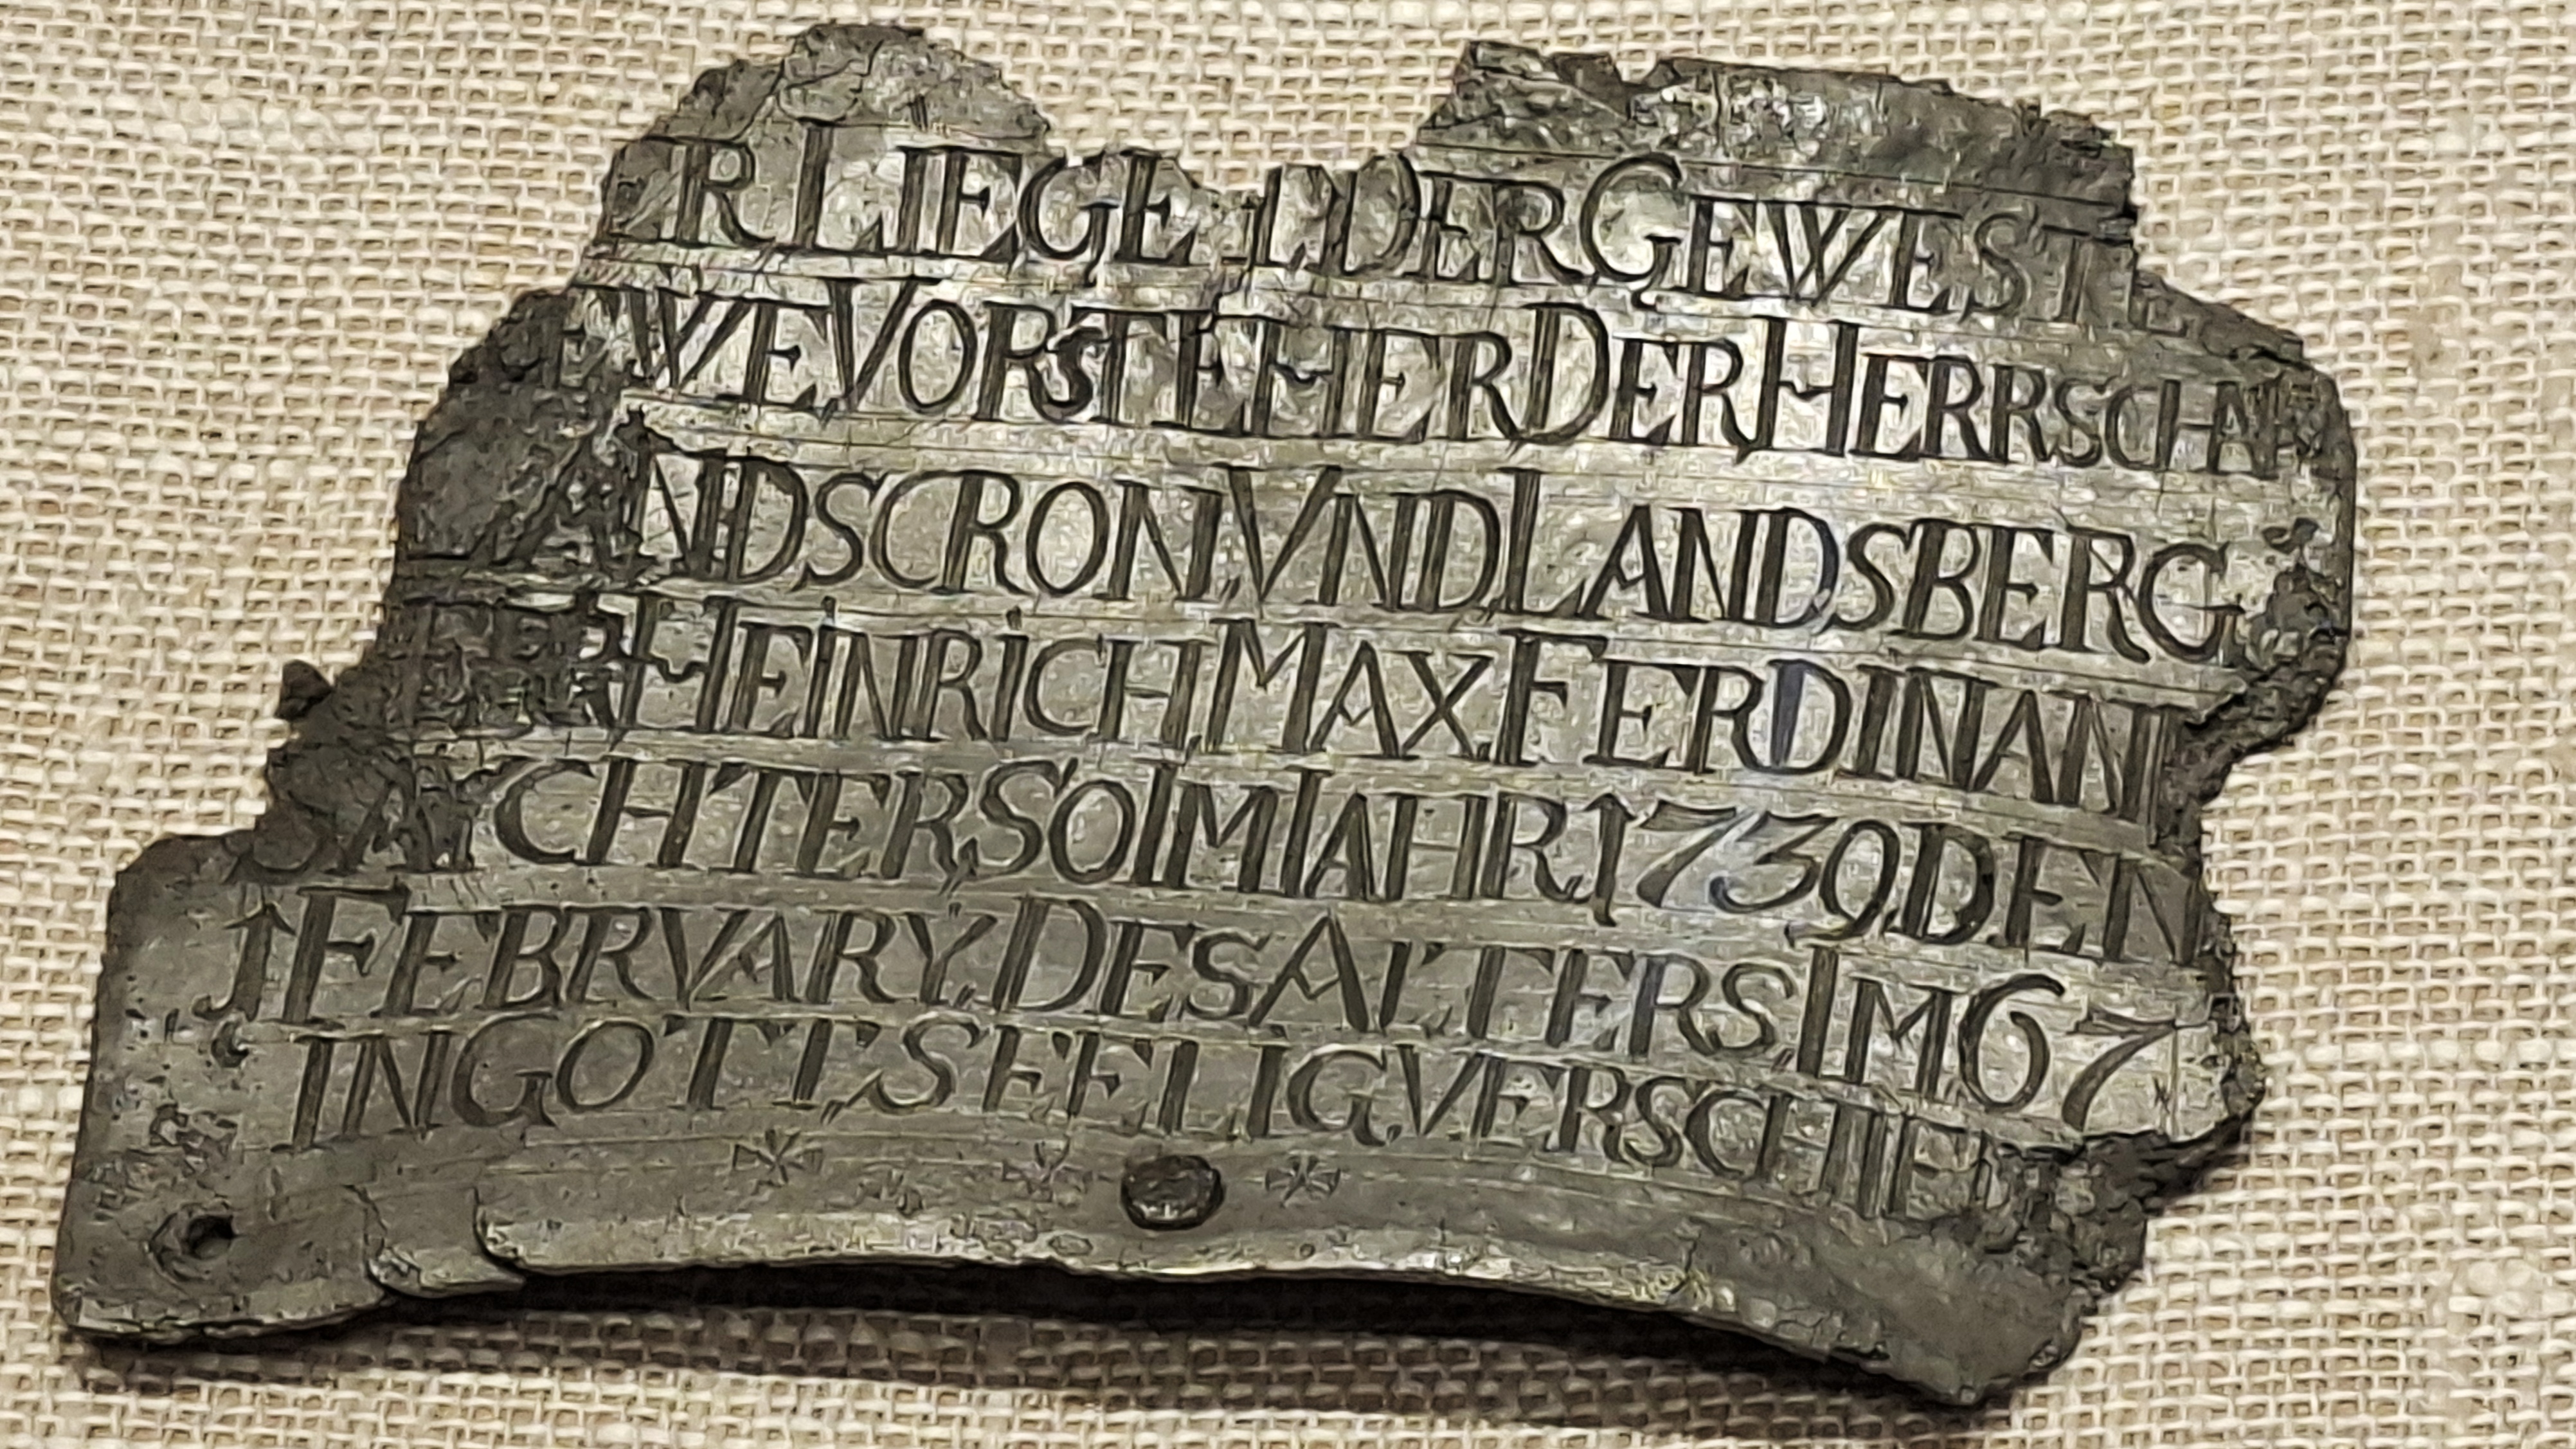 R LIEGET DER GEWEST
EWE VORSTEHER DER HERRSCHAF
ANDSCRON VND LANDSBERG
HER HEINRICH MAX FERDINAND
CHTER SO IM IAHR 1739 DEN
1 FEBRVARY DES ALTERS IM 67
IN GOTT SEELIG VERSCHIED